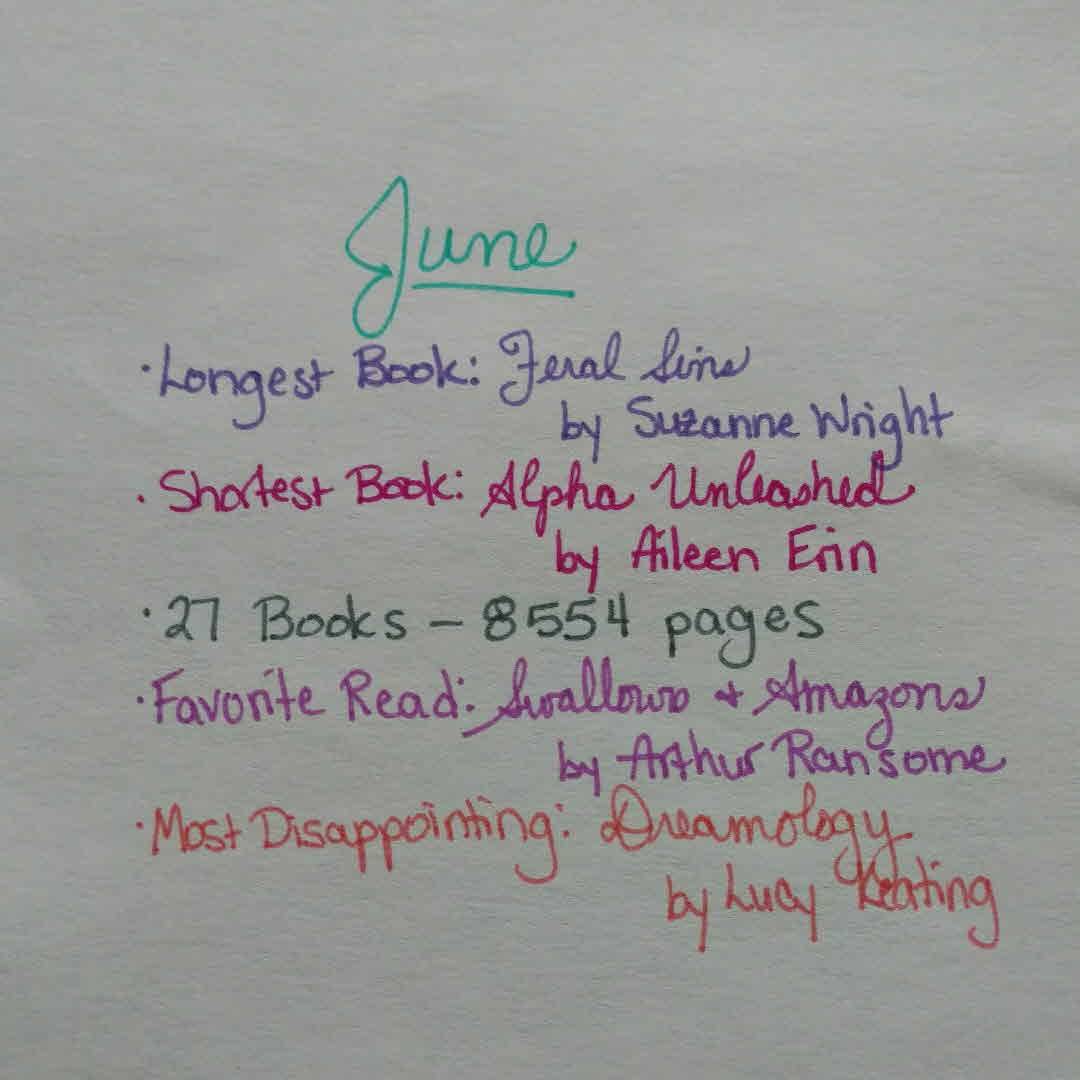 June
·Longest Book: Feral Sins
by Suzanne Wright
·Shortest Book: Alpha Unleashed
by Aileen Erin
·27 Books – 8554 pages
·Favorite Read: Swallows + Amazons
by Arthur Ransome
·Most Disappointing: Dreamology
by Lucy Keating